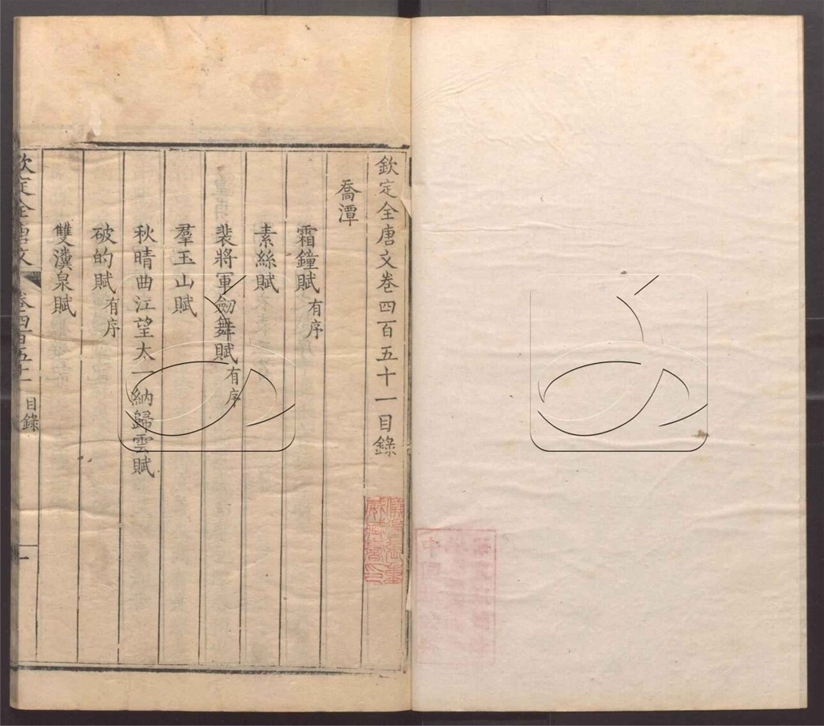 欽定全唐文卷四百五十一目錄
喬潭
霜鐘賦有序
素絲賦
裴將軍劒舞賦有序
羣玉山賦
秋晴曲江望太一納歸雲賦
破的賦有序
雙瀵泉賦
欽定全唐文 卷四百五十一 目錄 一